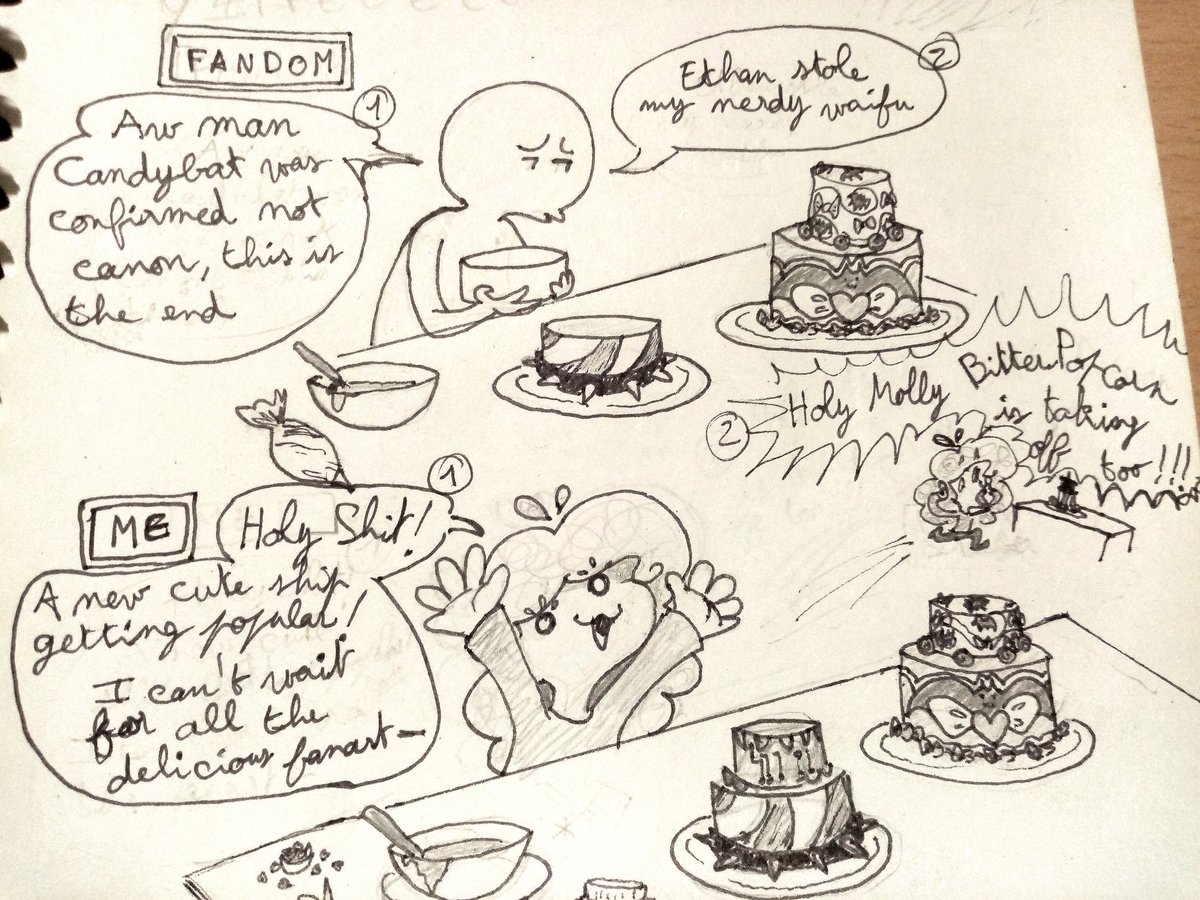 FANDOM
1
Aw man
Candybat was
confirmed not
canon, this is
the end
2
Ethan stole
my nerdy waifu
ME
1
Holy Shit!
A new cute ship
getting popular!
I can't wait
for all the
delicious fanart-
2
Holy Molly
BitterPopCorn
is taking
off too!!!